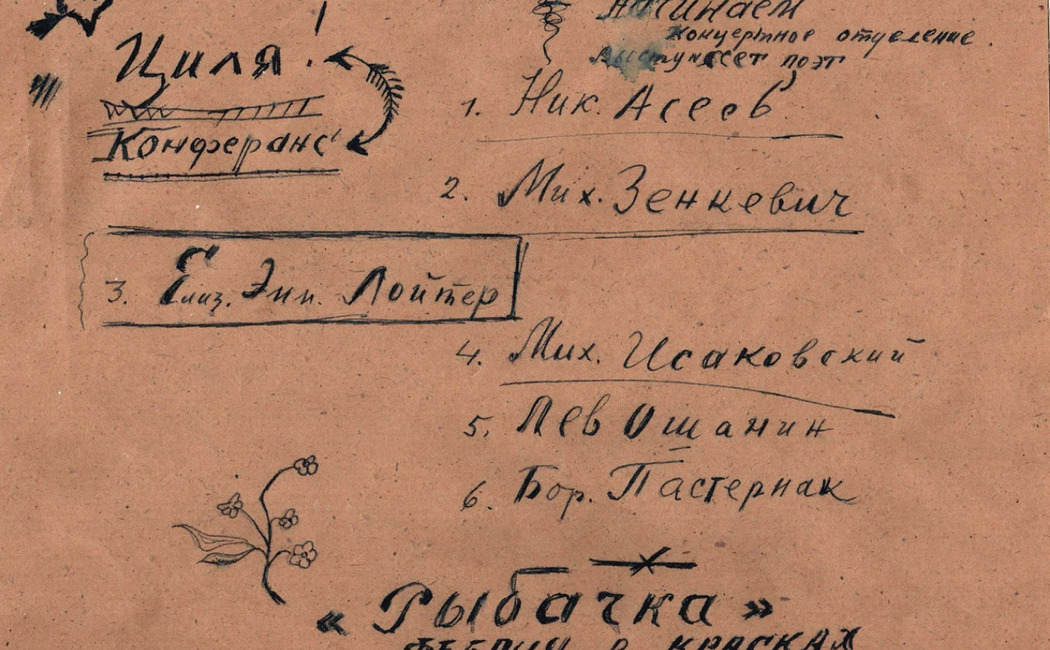 Циля!
Конферанс
Начинаем
концертное отделение.
Выступает поэт
1. Ник. Асеев
2. Мих. Зенкевич
3. Елиз. Эмм. Лойтер
4. Мих. Исаковский
5. Лев Ошанин
6. Бор. Пастернак
« Рыбачка »
феерия в красках